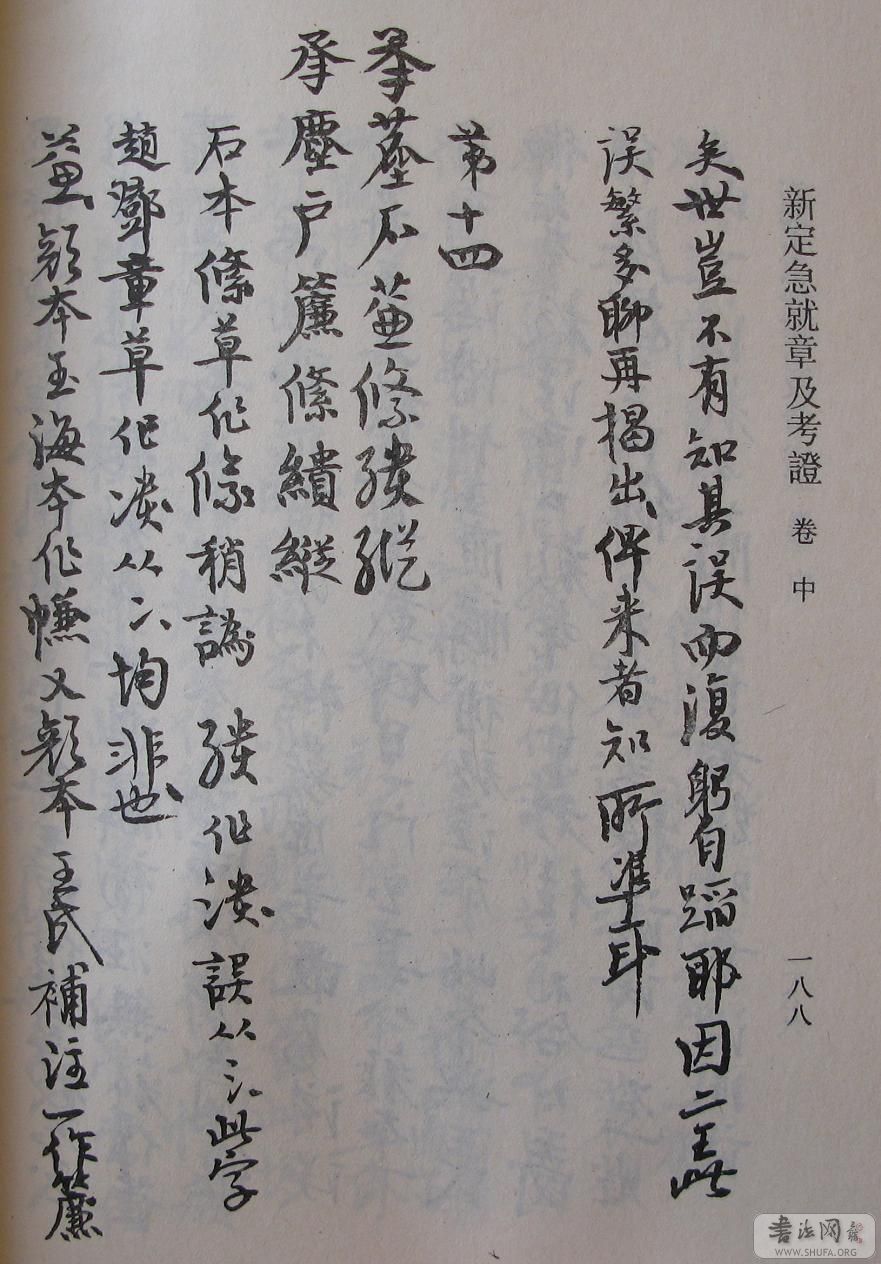 新定急就章及考證 卷中 一八八
矣世豈不有知其誤而復躬自蹈耶因二此
誤繁多聊再揭出俾来者知所準耳
第十四
承塵户
承塵户簾絛繢縱
石本絛草作絛稍譌 繢作潰誤从氵此字
趙鄧章草作凟从冫均非也
顔本玉海本作㡘又顔本王氏補注一作簾
書法网
WWW.SHUFA.ORG